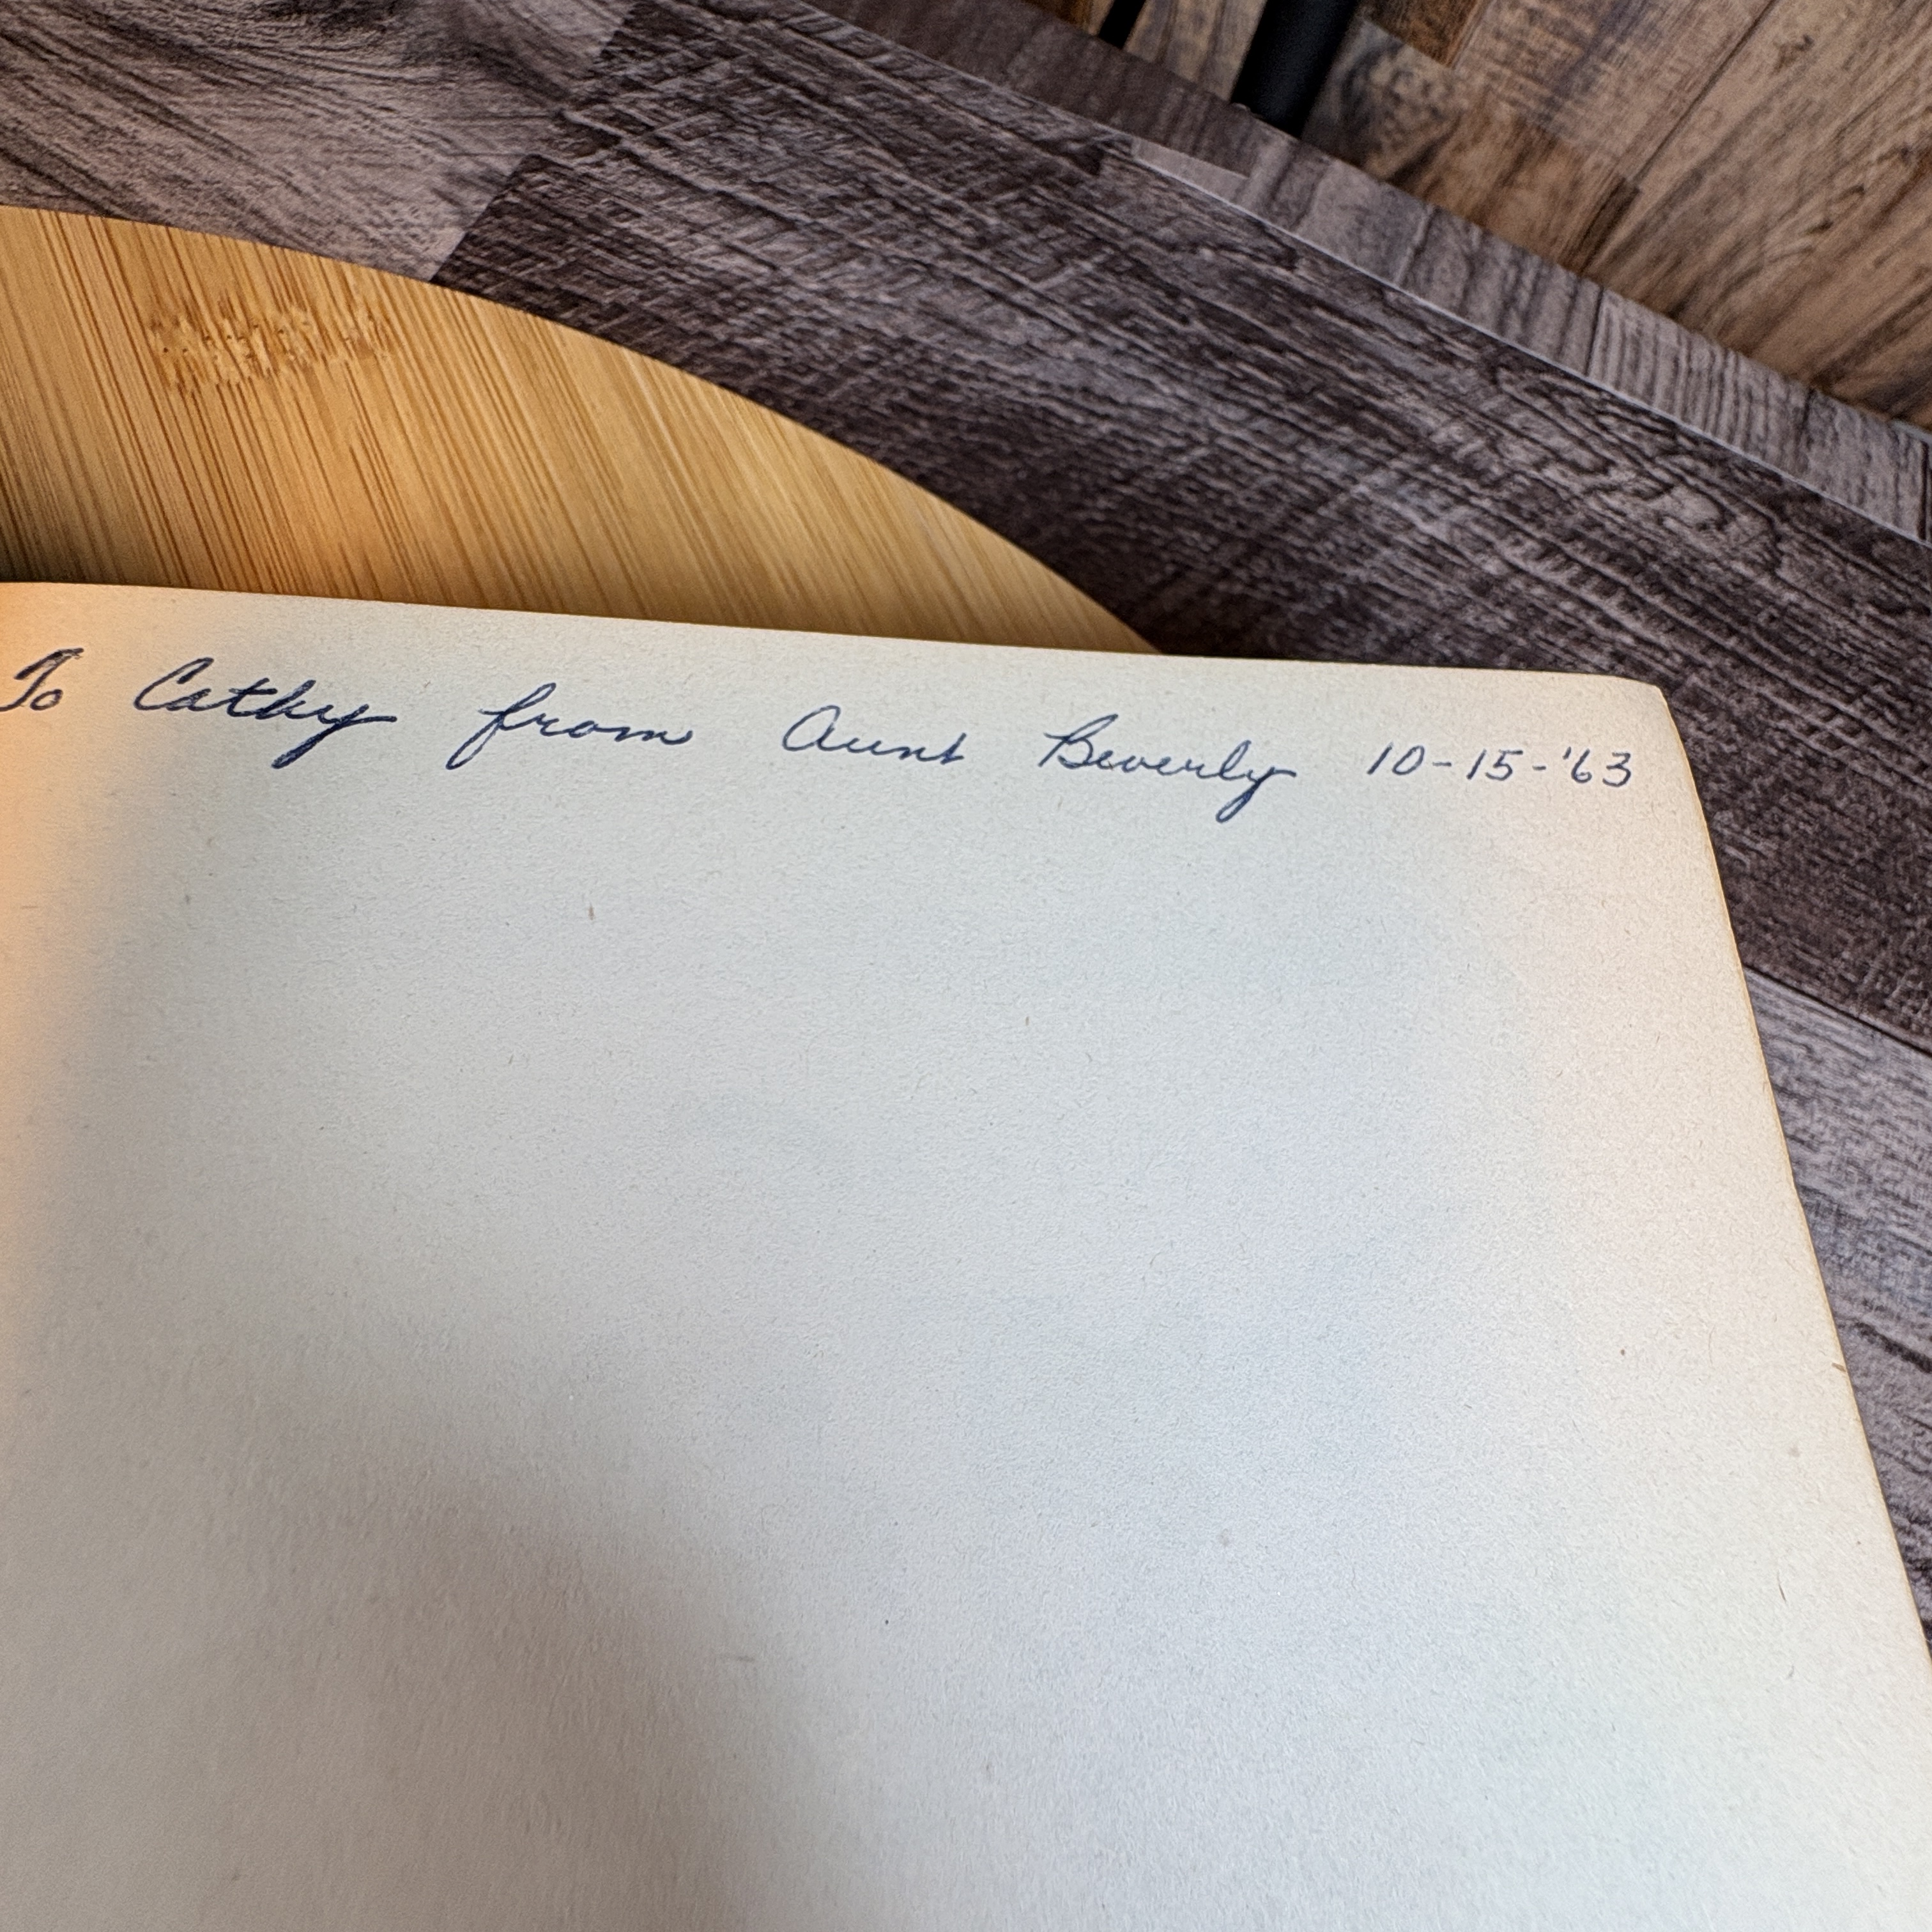 To Cathy from Aunt Beverly 10-15-'63